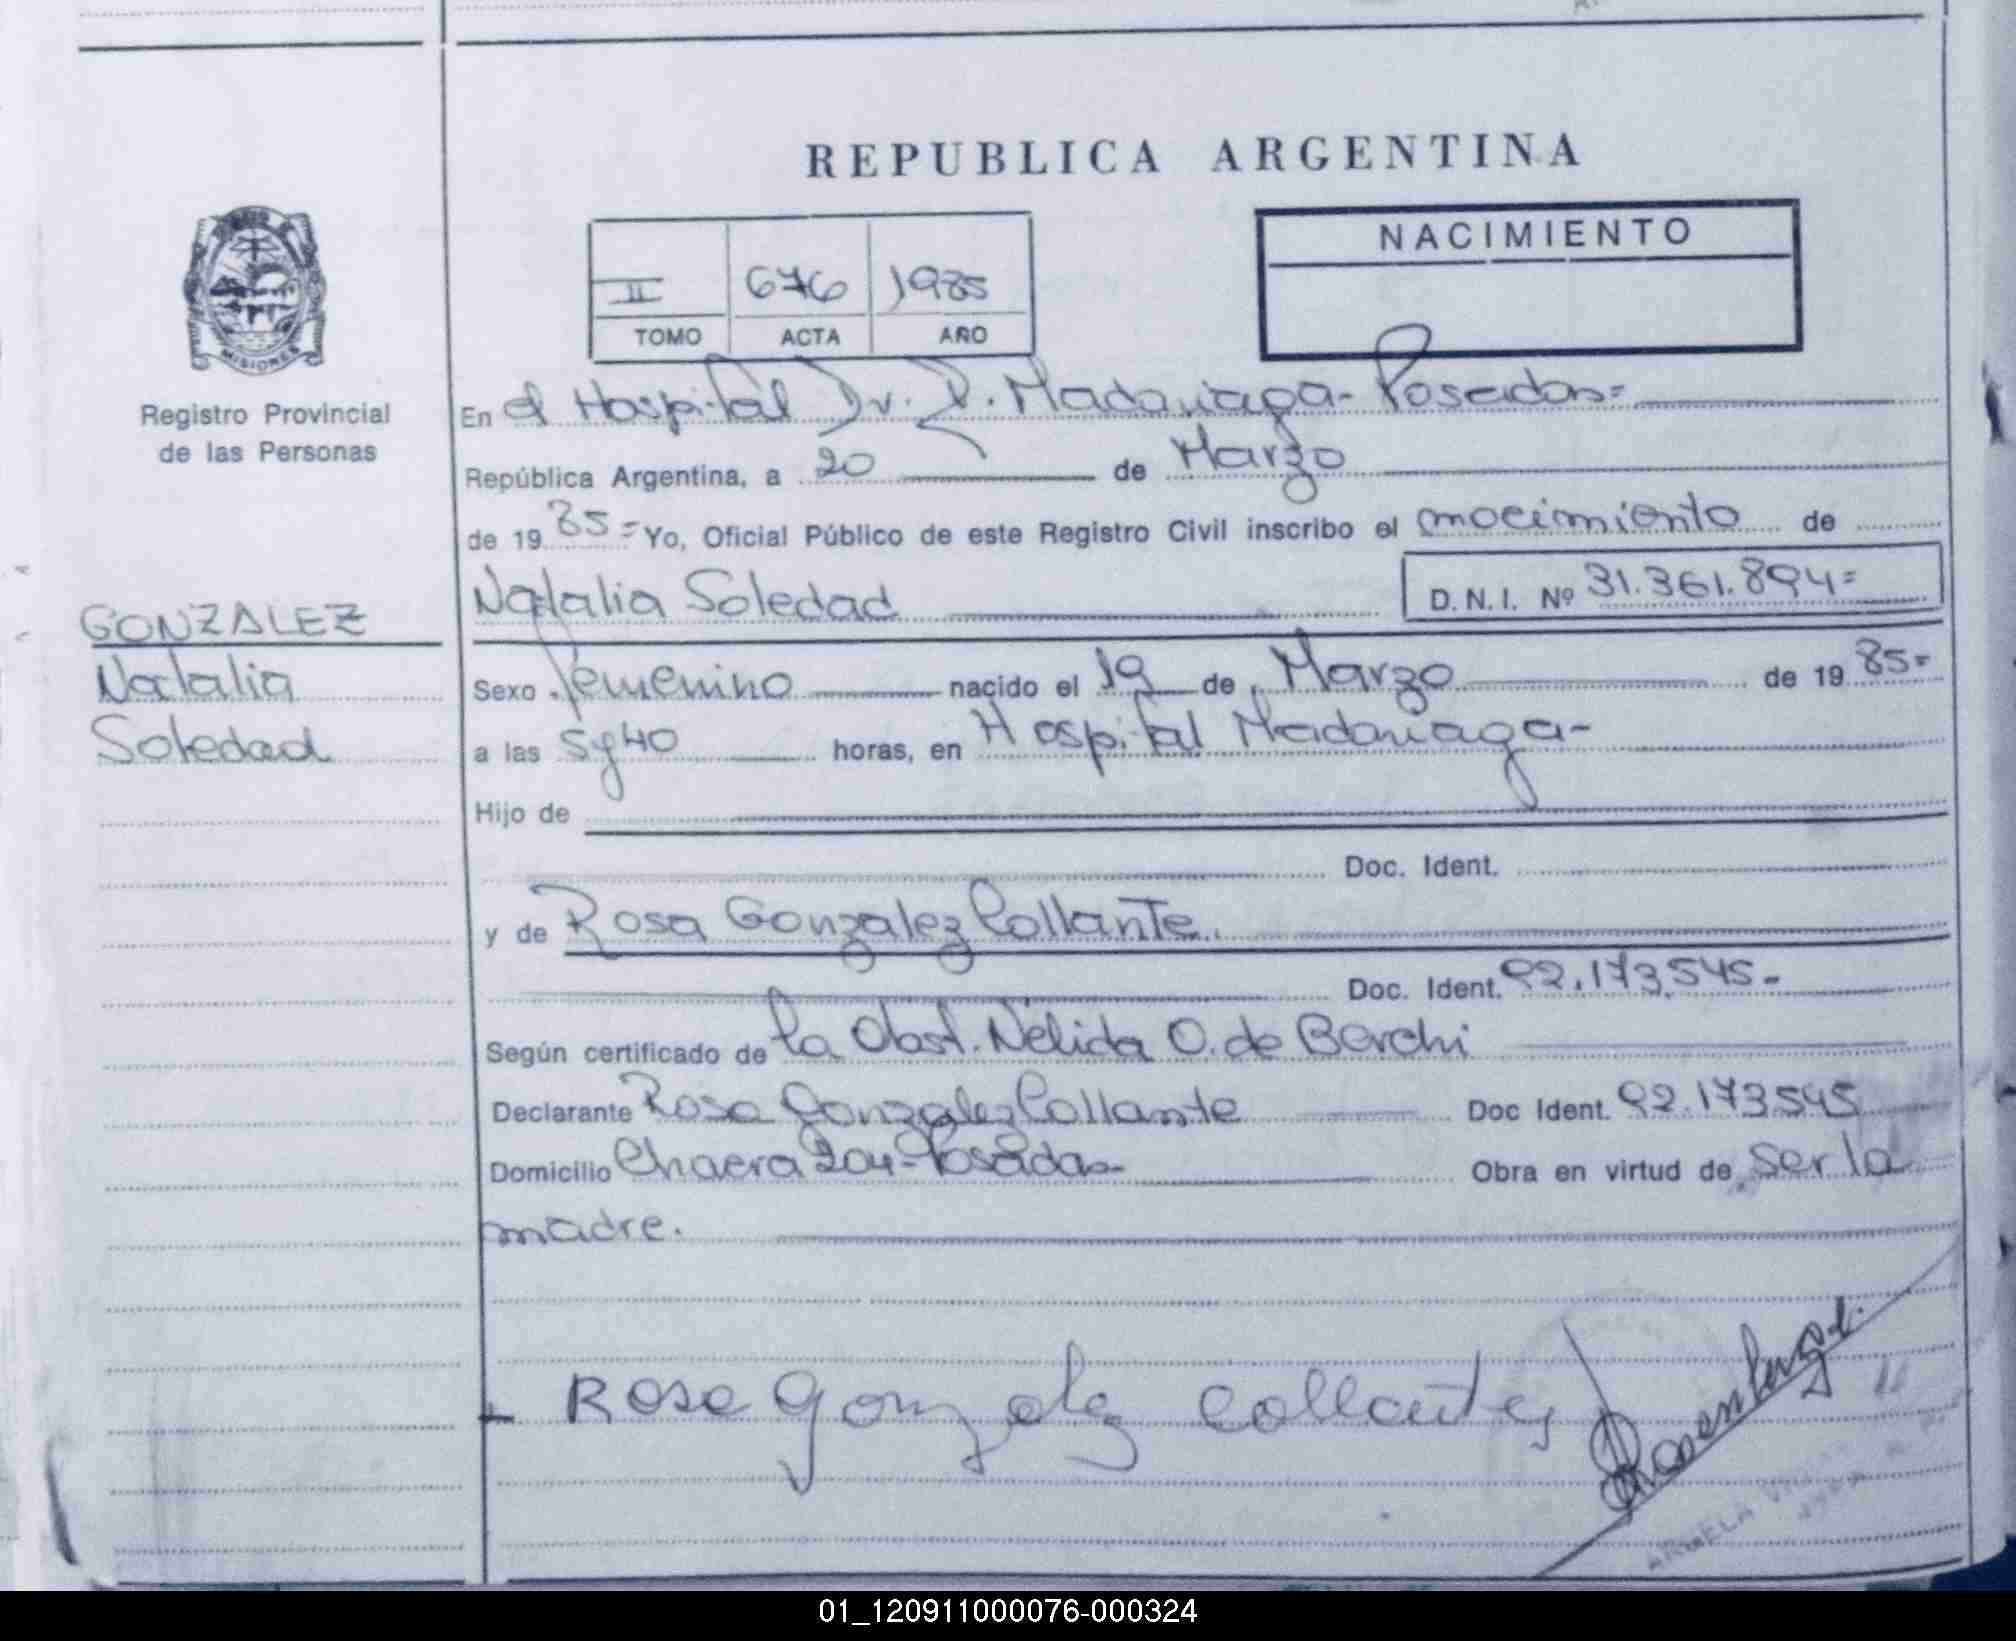 REPUBLICA ARGENTINA
NACIMIENTO
II 676 1985
TOMO ACTA AÑO
MISIONES
Registro Provincial
de las Personas
En el Hospital Dr. R. Madariaga - Posadas=
República Argentina, a 20 de Marzo
de 19 85= Yo, Oficial Público de este Registro Civil inscribo el nacimiento de
Natalia Soledad D.N.I. Nº 31.361.894=
GONZALEZ
Natalia
Soledad
Sexo femenino nacido el 19 de Marzo de 19 85=
a las 5 y 40 horas, en Hospital Madariaga-
Hijo de
Doc. Ident.
y de Rosa Gonzalez Collante.
Doc. Ident. 92.173.545-
Según certificado de la Obst. Nelida O. de Berchi
Declarante Rosa Gonzalez Collante Doc Ident. 92.173545
Domicilio Chacra 204-Posadas- Obra en virtud de ser la
madre.
Rosa gonzalez collante
ARGELA
01_120911000076-000324